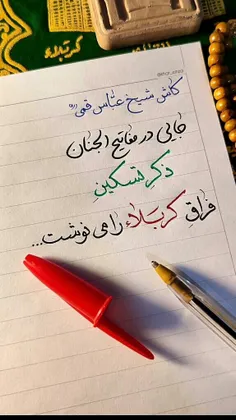 کربلاء
کاش شیخ عباس قمی ره
جایی در مفاتیح الجنان
ذکر تسکینِ
فراقِ کربلاء را می نوشت...